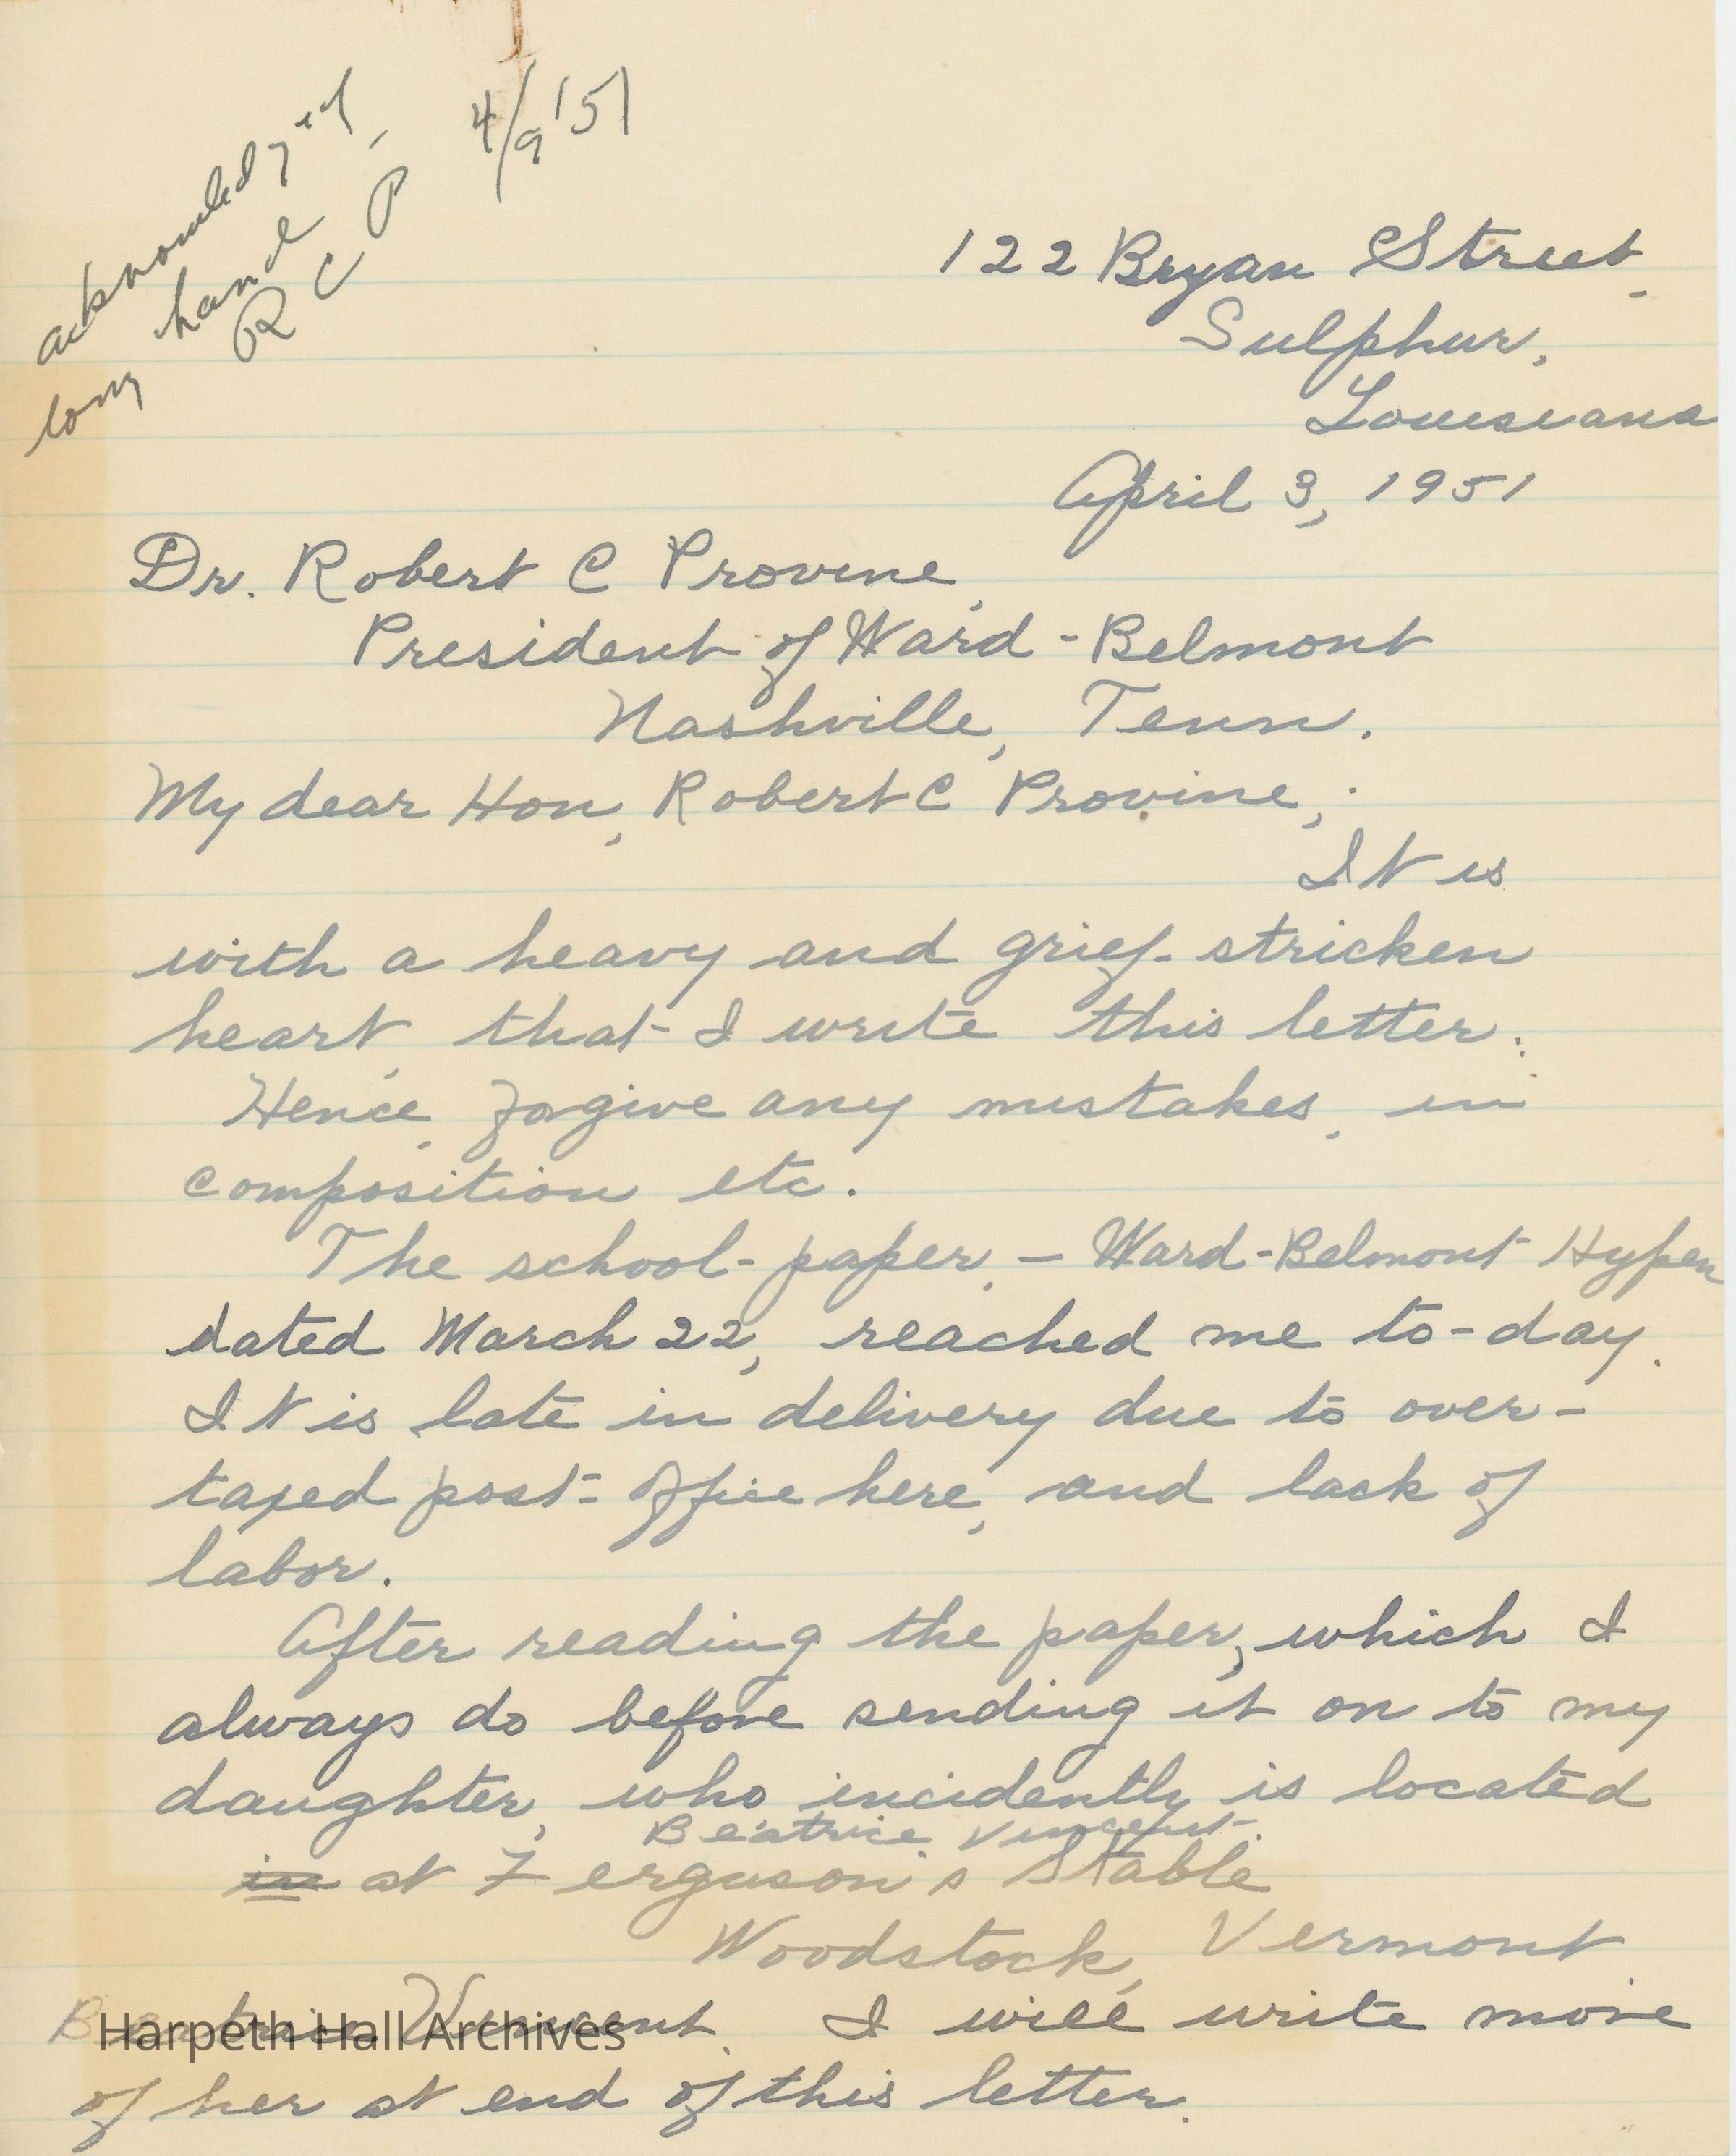 acknowledged 4/9/51
long hand
R C P
122 Bryan Street,
Sulphur,
Louisiana
April 3, 1951
Dr. Robert C Provine,
President of Ward-Belmont
Nashville, Tenn.
My dear Hon, Robert C Provine,:
It is
with a heavy and grief-stricken
heart, that I write this letter.
Hence, forgive any mistakes, in
composition etc.
The school-paper, - Ward-Belmont Hypen
dated March 22, reached me to-day.
It is late in delivery due to over-
taxed post-office here, and lack of
labor.
After reading the paper, which I
always do before sending it on to my
daughter, who incidently is located
Beatrice Vincent.
in at Ferguson's Stable
Woodstock, Vermont.
Beatrice Vincent. I will write more
of her at end of this letter.
Harpeth Hall Archives